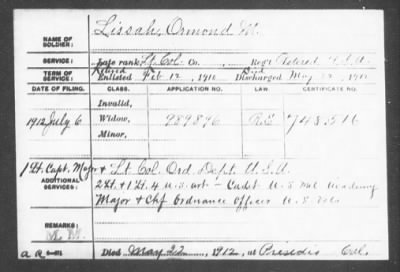 Lissah, Ormond M.
NAME OF SOLDIER:
SERVICE: Late rank Lt. Col. Co. , Reg't Retired U.S.A.
TERM OF SERVICE: Retired Enlisted Feb 12, 1910 Died Discharged May 22, 1912
DATE OF FILING. CLASS. APPLICATION NO. LAW. CERTIFICATE NO.
Invalid,
1912 July 6 Widow, 989896 748516
Minor,
1 Lt. Capt. Major & Lt Col. Ord. Dept. U.S.A.
ADDITIONAL SERVICES: 2 Lt. & 1 Lt. 4 U.S. art - Cadet U.S Mil Academy
Major & Chf Ordnance Officer U.S. Vols
REMARKS:
Died May 22, 1912, at Presidio Cal.